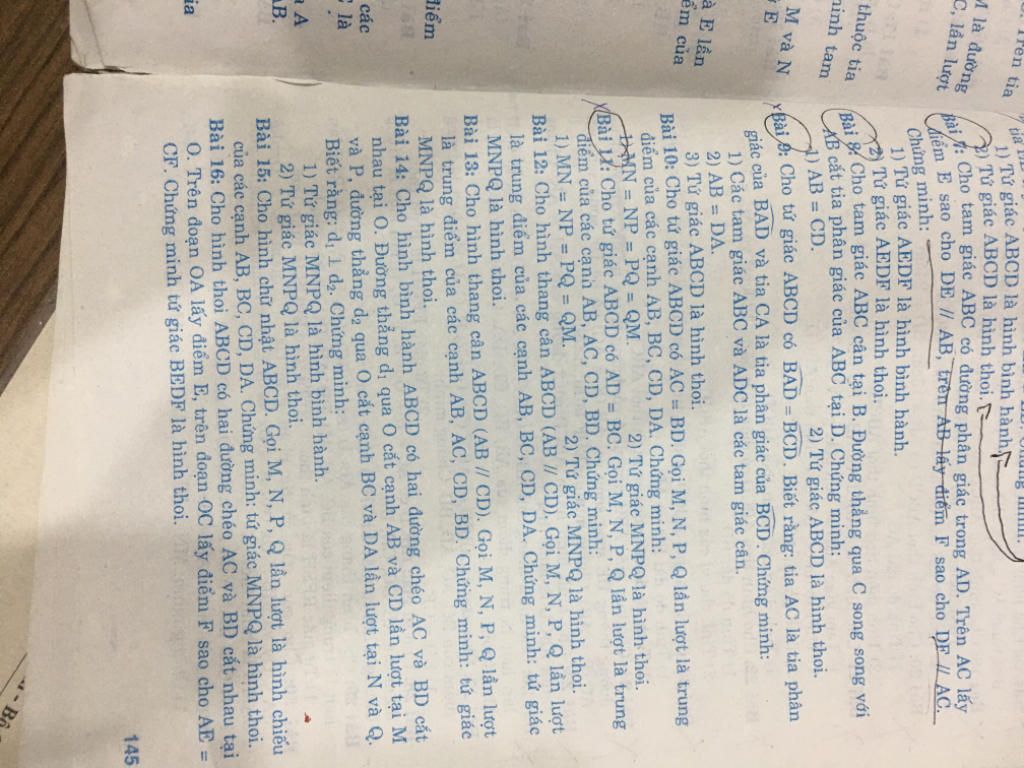 1) Tứ giác ABCD là hình bình hành.
2) Tứ giác ABCD là hình thoi.
Bài 7: Cho tam giác ABC có đường phân giác trong AD. Trên AC lấy
điểm E sao cho DE // AB, trên AB lấy điểm F sao cho DF // AC.
Chứng minh:
1) Tứ giác AEDF là hình bình hành.
2) Tứ giác AEDF là hình thoi.
Bài 8: Cho tam giác ABC cân tại B. Đường thẳng qua C song song với
AB cắt tia phân giác của ABC tại D. Chứng minh:
1) AB = CD. 2) Tứ giác ABCD là hình thoi.
Bài 9: Cho tứ giác ABCD có BAD = BCD. Biết rằng: tia AC là tia phân
giác của BAD và tia CA là tia phân giác của BCD. Chứng minh:
1) Các tam giác ABC và ADC là các tam giác cân.
2) AB = DA.
3) Tứ giác ABCD là hình thoi.
Bài 10: Cho tứ giác ABCD có AC = BD. Gọi M, N, P, Q lần lượt là trung
điểm của các cạnh AB, BC, CD, DA. Chứng minh:
1) MN = NP = PQ = QM. 2) Tứ giác MNPQ là hình thoi.
Bài 11: Cho tứ giác ABCD có AD = BC. Gọi M, N, P, Q lần lượt là trung
điểm của các cạnh AB, AC, CD, BD. Chứng minh:
1) MN = NP = PQ = QM. 2) Tứ giác MNPQ là hình thoi.
Bài 12: Cho hình thang cân ABCD (AB // CD), Gọi M, N, P, Q lần lượt
là trung điểm của các cạnh AB, BC, CD, DA. Chứng minh: tứ giác
MNPQ là hình thoi.
Bài 13: Cho hình thang cân ABCD (AB // CD). Gọi M, N, P, Q lần lượt
là trung điểm của các cạnh AB, AC, CD, BD. Chứng minh: tứ giác
MNPQ là hình thoi.
Bài 14: Cho hình bình hành ABCD có hai đường chéo AC và BD cắt
nhau tại O. Đường thẳng d₁ qua O cắt cạnh AB và CD lần lượt tại M
và P, đường thẳng d₂ qua O cắt cạnh BC và DA lần lượt tại N và Q.
Biết rằng: d₁ ⊥ d₂. Chứng minh:
1) Tứ giác MNPQ là hình bình hành.
2) Tứ giác MNPQ là hình thoi.
Bài 15: Cho hình chữ nhật ABCD. Gọi M, N, P, Q lần lượt là hình chiếu
của các cạnh AB, BC, CD, DA. Chứng minh: tứ giác MNPQ là hình thoi.
Bài 16: Cho hình thoi ABCD có hai đường chéo AC và BD cắt nhau tại
O. Trên đoạn OA lấy điểm E, trên đoạn OC lấy điểm F sao cho AE =
CF. Chứng minh tứ giác BEDF là hình thoi.
145
Trên tia
M là đường
C. lần lượt
thuộc tia
hình tam
M và N
E lần
điểm của
điểm
các
là
A
AB.